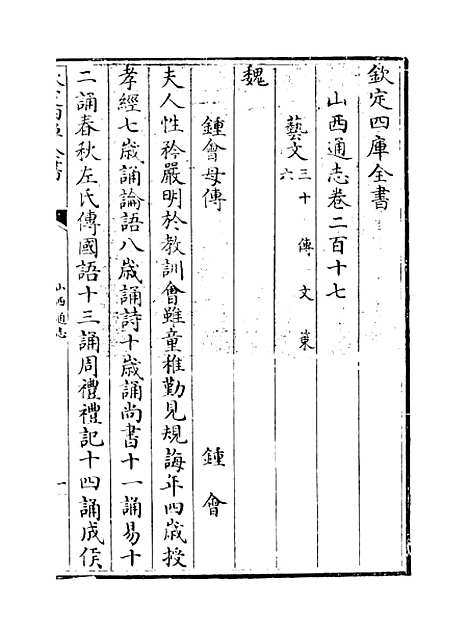 欽定四庫全書
山西通志卷二百十七
藝文三十六 傳文 
魏
鍾會母傳 鍾會
夫人性矜嚴明於教訓會雖童稚勤見規誨年四歲授
孝經七歲誦論語八歲誦詩十歲誦尚書十一誦易十
二誦春秋左氏傳國語十三誦周禮禮記十四誦成侯
山西通志
一